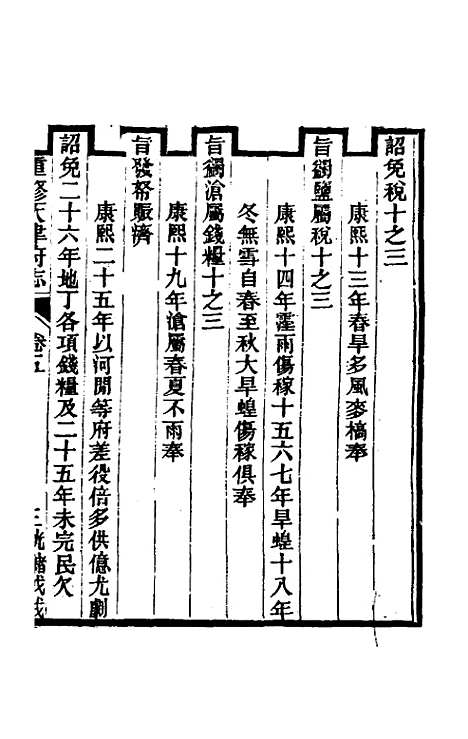 詔免稅十之三
康熙十三年春旱多風麥槁奉
旨蠲鹽屬稅十之三
康熙十四年霪雨傷稼十五六七年旱蝗十八年
冬無雪自春至秋大旱蝗傷稼俱奉
旨蠲滄屬錢糧十之三
康熙十九年滄屬春夏不雨奉
旨發帑賑濟
康熙二十五年以河間等府差役倍多供億尤劇
詔免二十六年地丁各項錢糧及二十五年未完民欠
重修天津府志 卷五